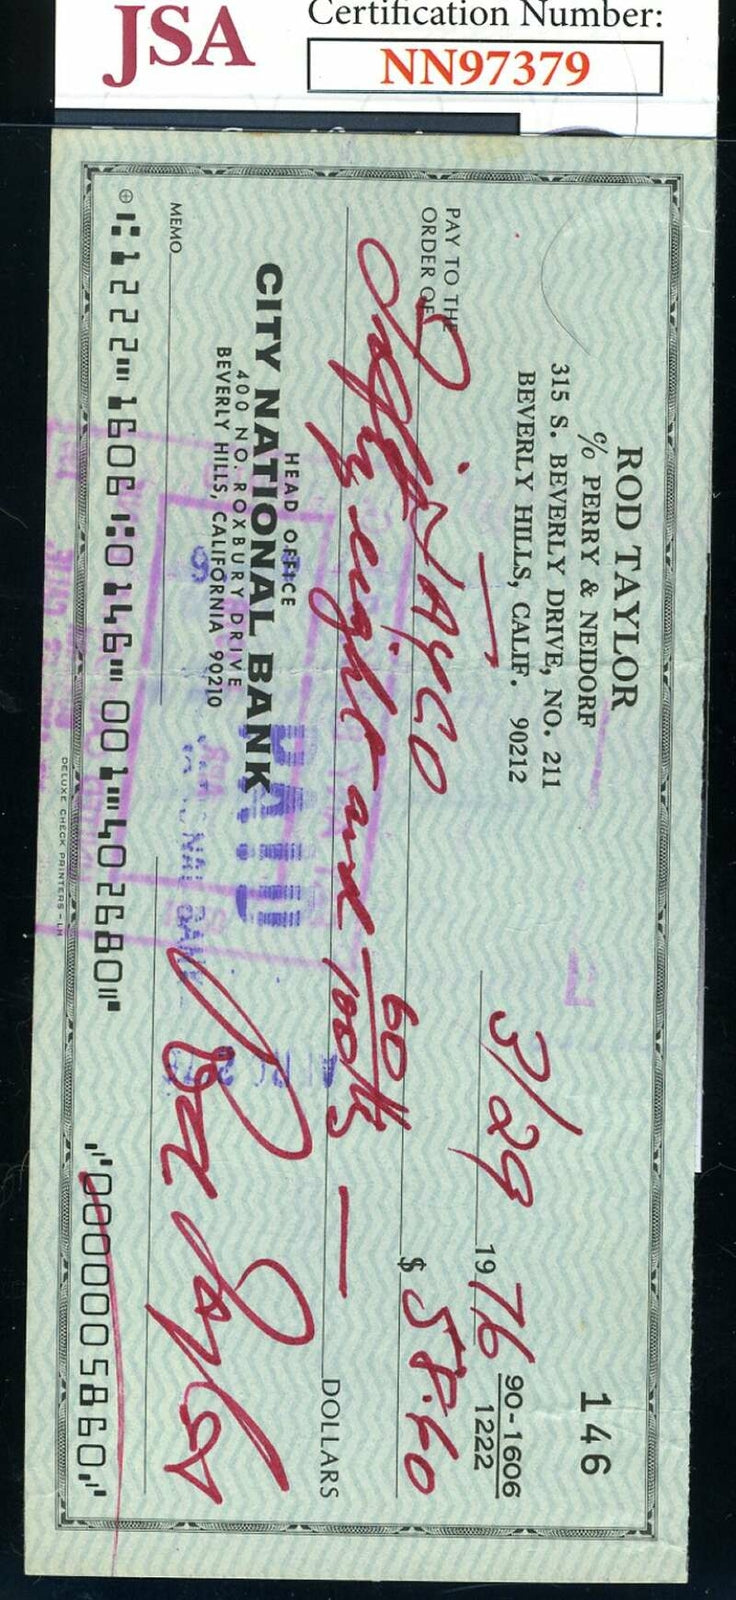 JSA
Certification Number:
NN97379
146
ROD TAYLOR
c/o PERRY & NEIDORF
315 S. BEVERLY DRIVE, NO. 211
BEVERLY HILLS, CALIF. 90212
3/29 1976
90-1606
1222
PAY TO THE
ORDER OF
JAYCO
$ 58.60
Fifty eight and 60/100ths —
DOLLARS
HEAD OFFICE
CITY NATIONAL BANK
400 NO. ROXBURY DRIVE
BEVERLY HILLS, CALIFORNIA 90210
PAID
MEMO
Rod Taylor
⑆1222⑉1606⑆0146⑉001⑉402680⑈ ⑈0000005860⑈
DELUXE CHECK PRINTERS - LH